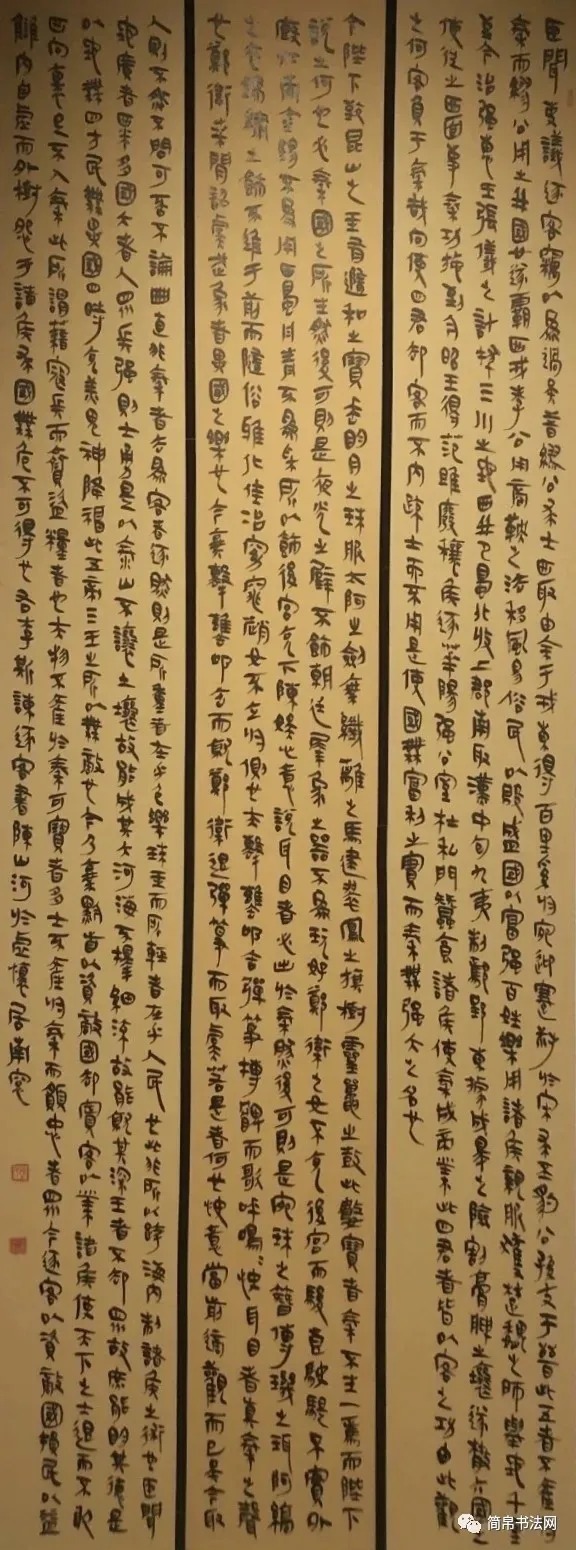 臣聞吏議逐客竊以為過矣昔繆公求士西取由余于戎東得百里奚於宛迎蹇叔於宋求丕豹公孫支于晉此五者不產於
秦而繆公用之并國廿遂霸西戎孝公用商鞅之法移風易俗民以殷盛國以富强百姓樂用諸侯親服獲楚魏之師舉地千里
至今治强惠王張儀之計拔三川之地西并巴蜀北收上郡南取漢中包九夷制鄢郢東據成皋之險割膏腴之壤遂散六國之
使從之西面事秦功施到今昭王得范雎廢穰侯逐華陽强公室杜私門蠶食諸侯使秦成帝業此四君者皆以客之功由此觀
之何客負于秦哉向使四君却客而不內疏士而不用是使國無富利之實而秦無强大之名也
今陛下致昆山之玉有隨和之寶垂明月之珠服太阿之劍乘纖離之馬建翠鳳之旗樹靈鼉之鼓此數寶者秦不生一焉而陛下
說之何也必秦國之所生然後可則是夜光之璧不飾朝廷犀象之器不為玩好鄭衛之女不充後宮而駿良駃騠不實外
廄江南金錫不為用西蜀丹青不為采所以飾後宮充下陳娛心意說耳目者必出於秦然後可則是宛珠之簪傅璣之珥阿縞
之衣錦繡之飾不進于前而隨俗雅化佳冶窈窕趙女不立於側也夫擊甕叩缶彈箏搏髀而歌呼嗚嗚快耳目者真秦之聲
也鄭衛桑間韶虞武象者異國之樂也今棄擊甕叩缶而就鄭衛退彈箏而取韶虞若是者何也快意當前適觀而已矣今取
人則不然不問可否不論曲直非秦者去為客者逐然則是所重者在乎色樂珠玉而所輕者在乎人民也此非所以跨海內制諸侯之術也臣聞
地廣者粟多國大者人眾兵强則士勇是以泰山不讓土壤故能成其大河海不擇細流故能就其深王者不却眾故庶能明其德是
以地無四方民無異國四時充美鬼神降福此五帝三王之所以無敵也今乃棄黔首以資敵國却賓客以業諸侯使天下之士退而不敢
西向裹足不入秦此所謂藉寇兵而齎盜糧者也夫物不產於秦可寶者多士不產於秦而願忠者眾今逐客以資敵國損民以益
讎內自虛而外樹怨于諸侯求國無危不可得也右李斯諫逐客書陳山河於虛懷居南窗
简帛书法网